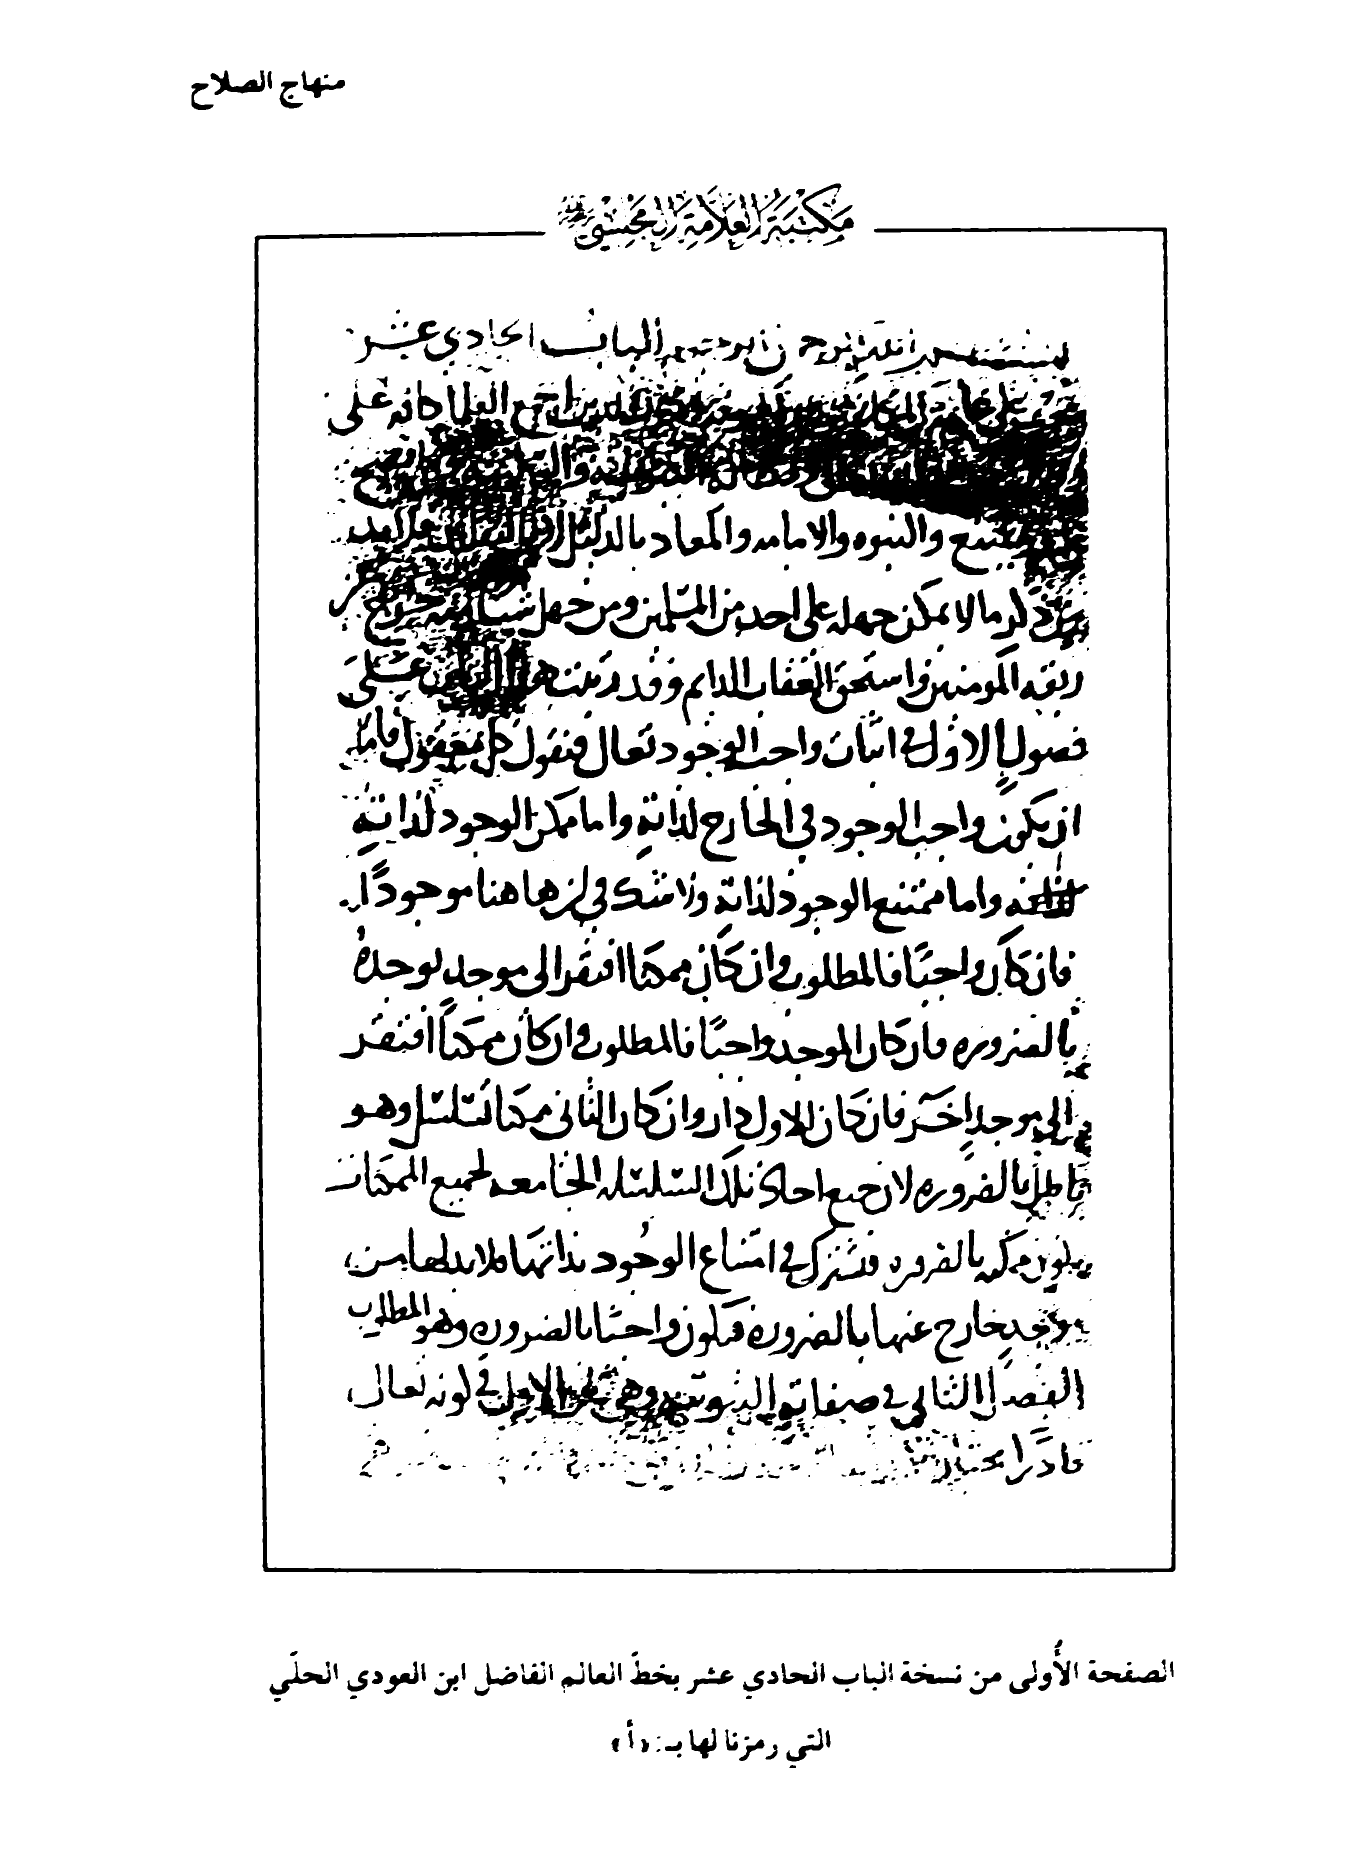 منهاج الصلاح
مكتبة العلامة المجلسي
بسم الله الرحمن الرحيم الباب الحادي عشر
فيما يجب على عامة المكلفين اجمع العلما كافه على
والسلبية وما يصح
ويمتنع والنبوه والامامه والمعاد بالدليل لا بالتقليد فلا بد
من ذكر ما لا يمكن جهله على احد من المسلمين ومن جهل شيا منه خرج عن
ربقه المومنين واستحق العقاب الدايم وقد رتبت هذا الباب على
فصول الاول في اثبات واجب الوجود تعالى فنقول كل معقول فاما
ان يكون واجب الوجود في الخارج لذاته واما ممكن الوجود لذاته
واما ممتنع الوجود لذاته ولا شك في ان هاهنا موجودًا
فان كان واجبًا فالمطلوب وان كان ممكنا افتقر الى موجد يوجده
بالضروره فان كان الموجد واجبًا فالمطلوب وان كان ممكنًا افتقر
الى موجد اخر فان كان الاول دار وان كان الثاني ممكنا تسلسل وهو
باطل بالضروره لان جميع احاد تلك السلسله الجامعه لجميع الممكنات
يكون ممكنه بالضروره فتشترك في امتناع الوجود بذاتها فلا بد لها من
موجد خارج عنها بالضروره فيكون واجبًا بالضروره وهو المطلوب
الفصل الثاني في صفاته الثبوتيه وهي ثمان الاول في كونه تعالى
قادرًا مختارًا
الصفحة الأُولى من نسخة الباب الحادي عشر بخطّ العالم الفاضل ابن العودي الحلّي
التي رمزنا لها بـ: «أ»